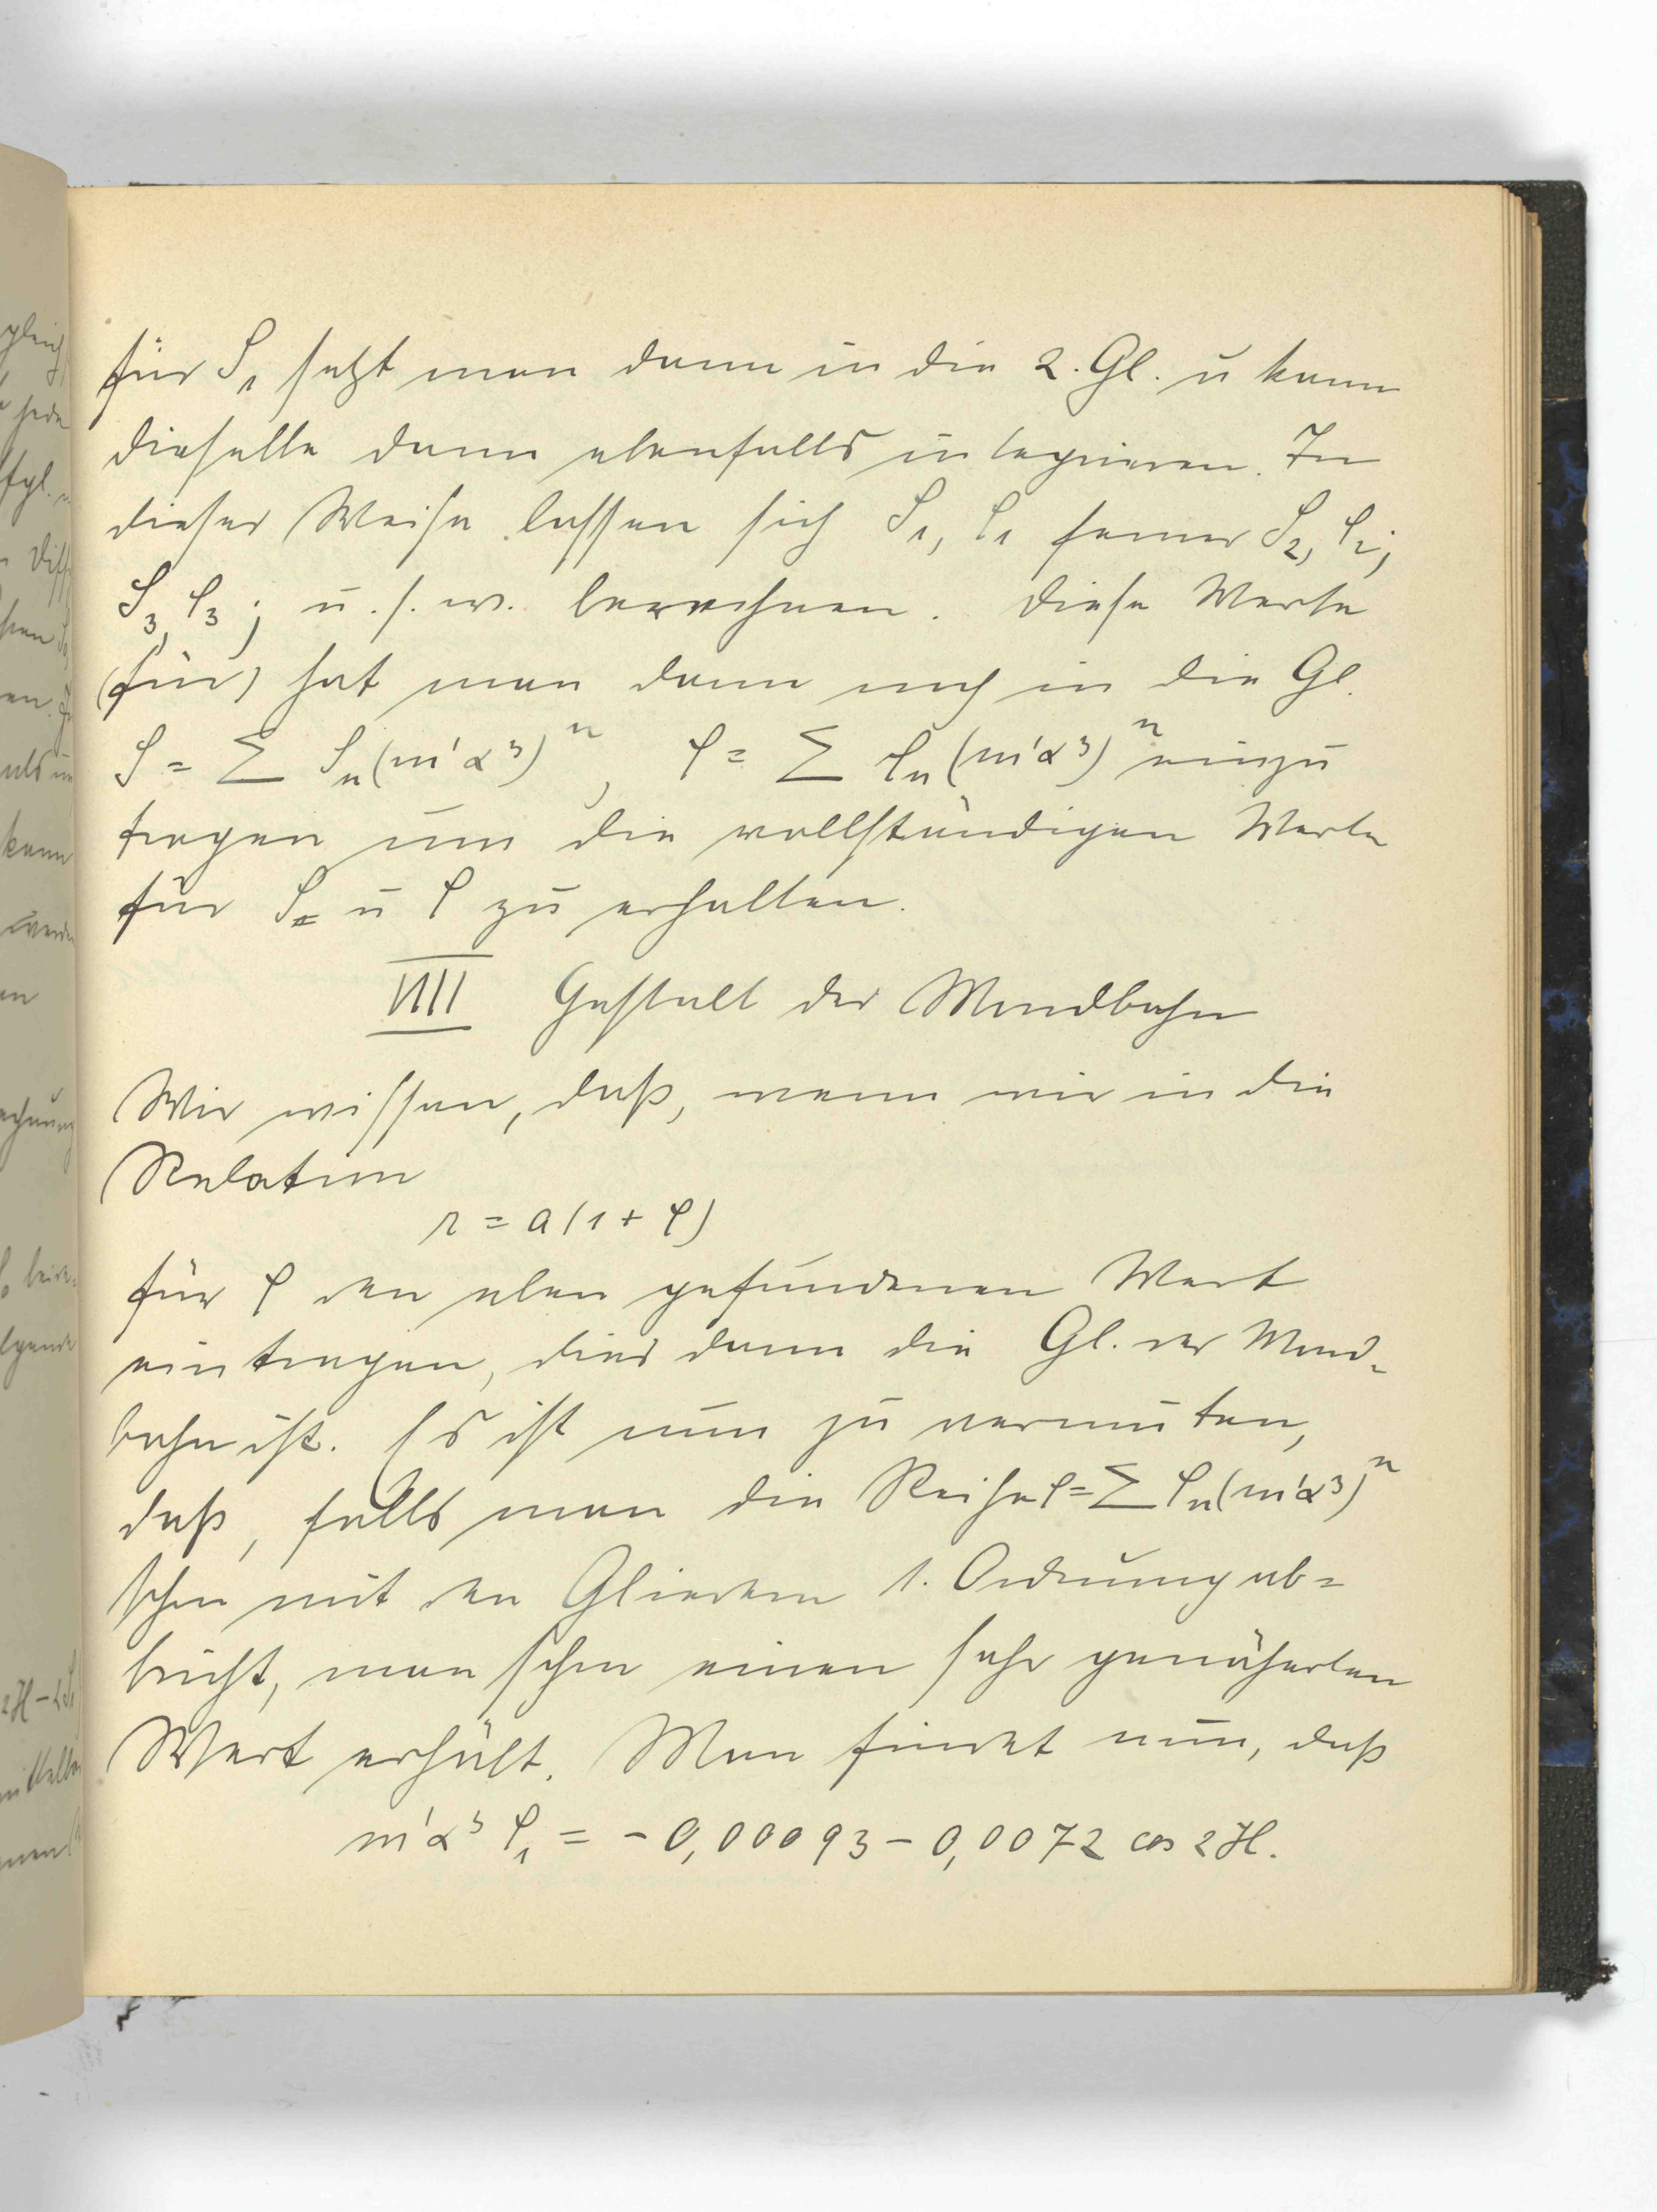 für S₁ setzt man dann in die 2. Gl. u kann
dieselbe dann ebenfalls integrieren. In
dieser Weise lassen sich S₁, ρ₁ ferner S₂, ρ₂;
S₃, ρ₃; u. s. w. berechnen. Diese Werte
(für) hat man dann noch in die Gl.
S = Σ Sₙ(m'α³)ⁿ, ρ = Σ ρₙ(m'α³)ⁿ einzu
tragen um die vollständigen Werte
für S u ρ zu erhalten.
VIII Gestalt der Mondbahn
Wir wissen, daß, wenn wir in die
Relation
r = a(1 + ρ)
für ρ den eben gefundenen Wert
eintragen, dies dann die Gl. der Mond-
bahn ist. Es ist nun zu vermuten,
daß, falls man die Reihe ρ = Σ ρₙ(m'α³)ⁿ
schon mit den Gliedern 1. Ordnung ab=
bricht, man schon einen sehr genäherten
Wert erhält. Man findet nun, daß
m'α³ ρ₁ = - 0,00093 - 0,0072 cos 2H.